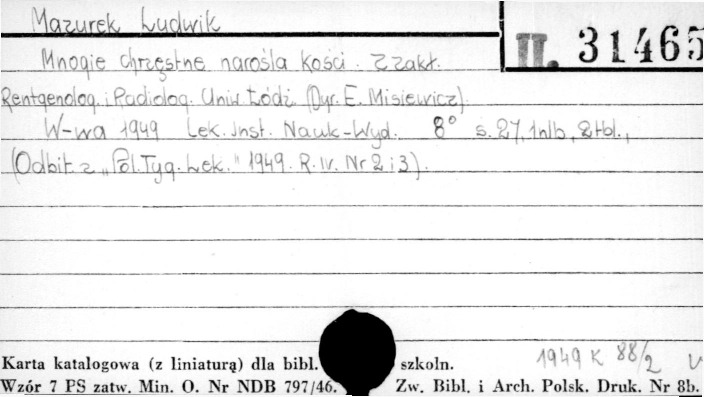 Mazurek Ludwik
II. 31465
Mnogie chrzęstne narośla kości. Z Zakł.
Rentgenolog. i Radiolog. Uniw. Łódź. (Dyr. E. Misiewicz).
W-wa 1949 Lek. Inst. Nauk-Wyd. 8° s. 27, 1 nlb, 2 tbl.,
(Odbit. z „Pol. Tyg. Lek." 1949. R. IV. Nr 2 i 3).
1949 K 88/2
Karta katalogowa (z liniaturą) dla bibl. szkoln.
Wzór 7 PS zatw. Min. O. Nr NDB 797/46. Zw. Bibl. i Arch. Polsk. Druk. Nr 8b.